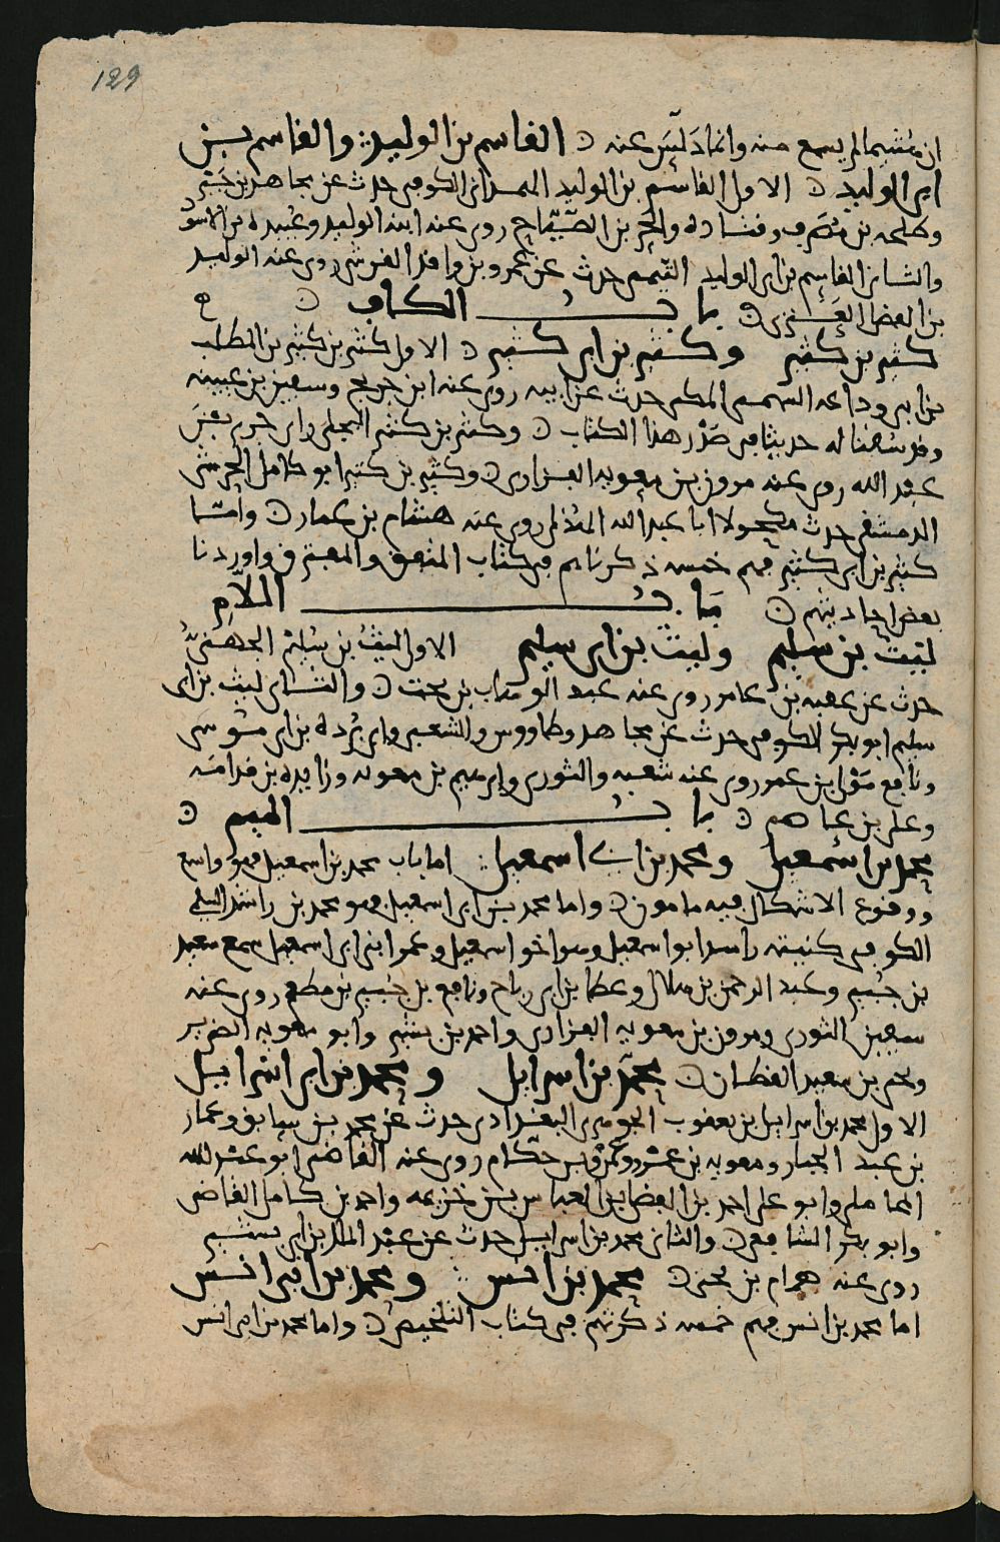 129
ان هشيما لم يسمع منه وانما دلس عنه ٥ القاسم بن الوليد والقاسم بن
ابي الوليد ٥ الاول القاسم بن الوليد الهمداني الكوفي حدث عن مجاهد بن جبر
وطلحه بن مصرف وقتادة والحر بن الصياح روى عنه ابنه الوليد وعبيدة بن الاسود
والثاني القاسم بن ابي الوليد التميمي حدث عن عمرو بن واقد القرشي روى عنه الوليد
بن الفضل العنزي ٥ باب الكاف ٥
كثير بن كثير وكثير بن ابي كثير ٥ الاول كثير بن كثير بن المطلب
بن ابي وداعه السهمي المكي حدث عن ابيه روى عنه ابن جريج وسفين بن عيينه
وقد سقنا له حديثا في صدر هذا الكتاب ٥ وكثير بن كثير البجلي راى جرير بن
عبد الله روى عنه مرون بن معويه الفزاري ٥ وكثير بن كثير ابو كامل الجرشي
الدمشقي حدث مكحولا ابا عبد الله الهذلي روى عنه هشام بن عمار ٥ واما
كثير بن ابي كثير فهم خمسه ذكرناهم في كتاب المتفق والمفترق واوردنا
بعض احاديثهم ٥ باب اللام
ليث بن سليم وليث بن ابي سليم الاول ليث بن سليم الجهني
حدث عن عقبه بن عامر روى عنه عبد الوهاب بن بخت ٥ والثاني ليث بن ابي
سليم ابو بكر الكوفي حدث عن مجاهد وطاووس والشعبي وابي بردة بن ابي موسى
ونافع مولى بن عمر روى عنه شعبه والثوري وابرهيم بن معويه وزايدة بن قدامه
وعلي بن عاصم ٥ باب الميم ٥
محمد بن اسمعيل ومحمد بن ابي اسمعيل اما باب محمد بن اسمعيل فهو واسع
ووقوع الاشكال فيه مامون ٥ واما محمد بن ابي اسمعيل فهو محمد بن راشد السلمي
الكوفي كنيته راشد ابو اسمعيل وهو اخو اسمعيل وعمر ابني ابي اسمعيل سمع سعيد
بن جبير وعبد الرحمن بن هلال وعطا بن ابي رباح ونافع بن جبير بن مطعم روى عنه
سفين الثوري ومرون بن معويه الفزاري واحمد بن بشير وابو معويه الضرير
ويحيى بن سعيد القطان ٥ محمد بن اسرايل ومحمد بن ابي اسرايل
الاول محمد بن اسرايل بن يعقوب الجوهري البغدادي حدث عن محمد بن سابق وعمار
بن عبد الجبار ومعويه بن عمرو وعمرو بن حكام روى عنه القاضي ابو عبد الله
المحاملي وابو علي احمد بن الفضل بن العباس بن خزيمه واحمد بن كامل القاضي
وابو بكر الشافعي ٥ والثاني محمد بن ابي اسرايل حدث عن عبد الملك بن ابي بشير
روى عنه هرام بن يحيى ٥ محمد بن انس ومحمد بن ابي انس
اما محمد بن انس فهم خمسه ذكرتهم في كتاب التلخيص ٥ واما محمد بن ابي انس